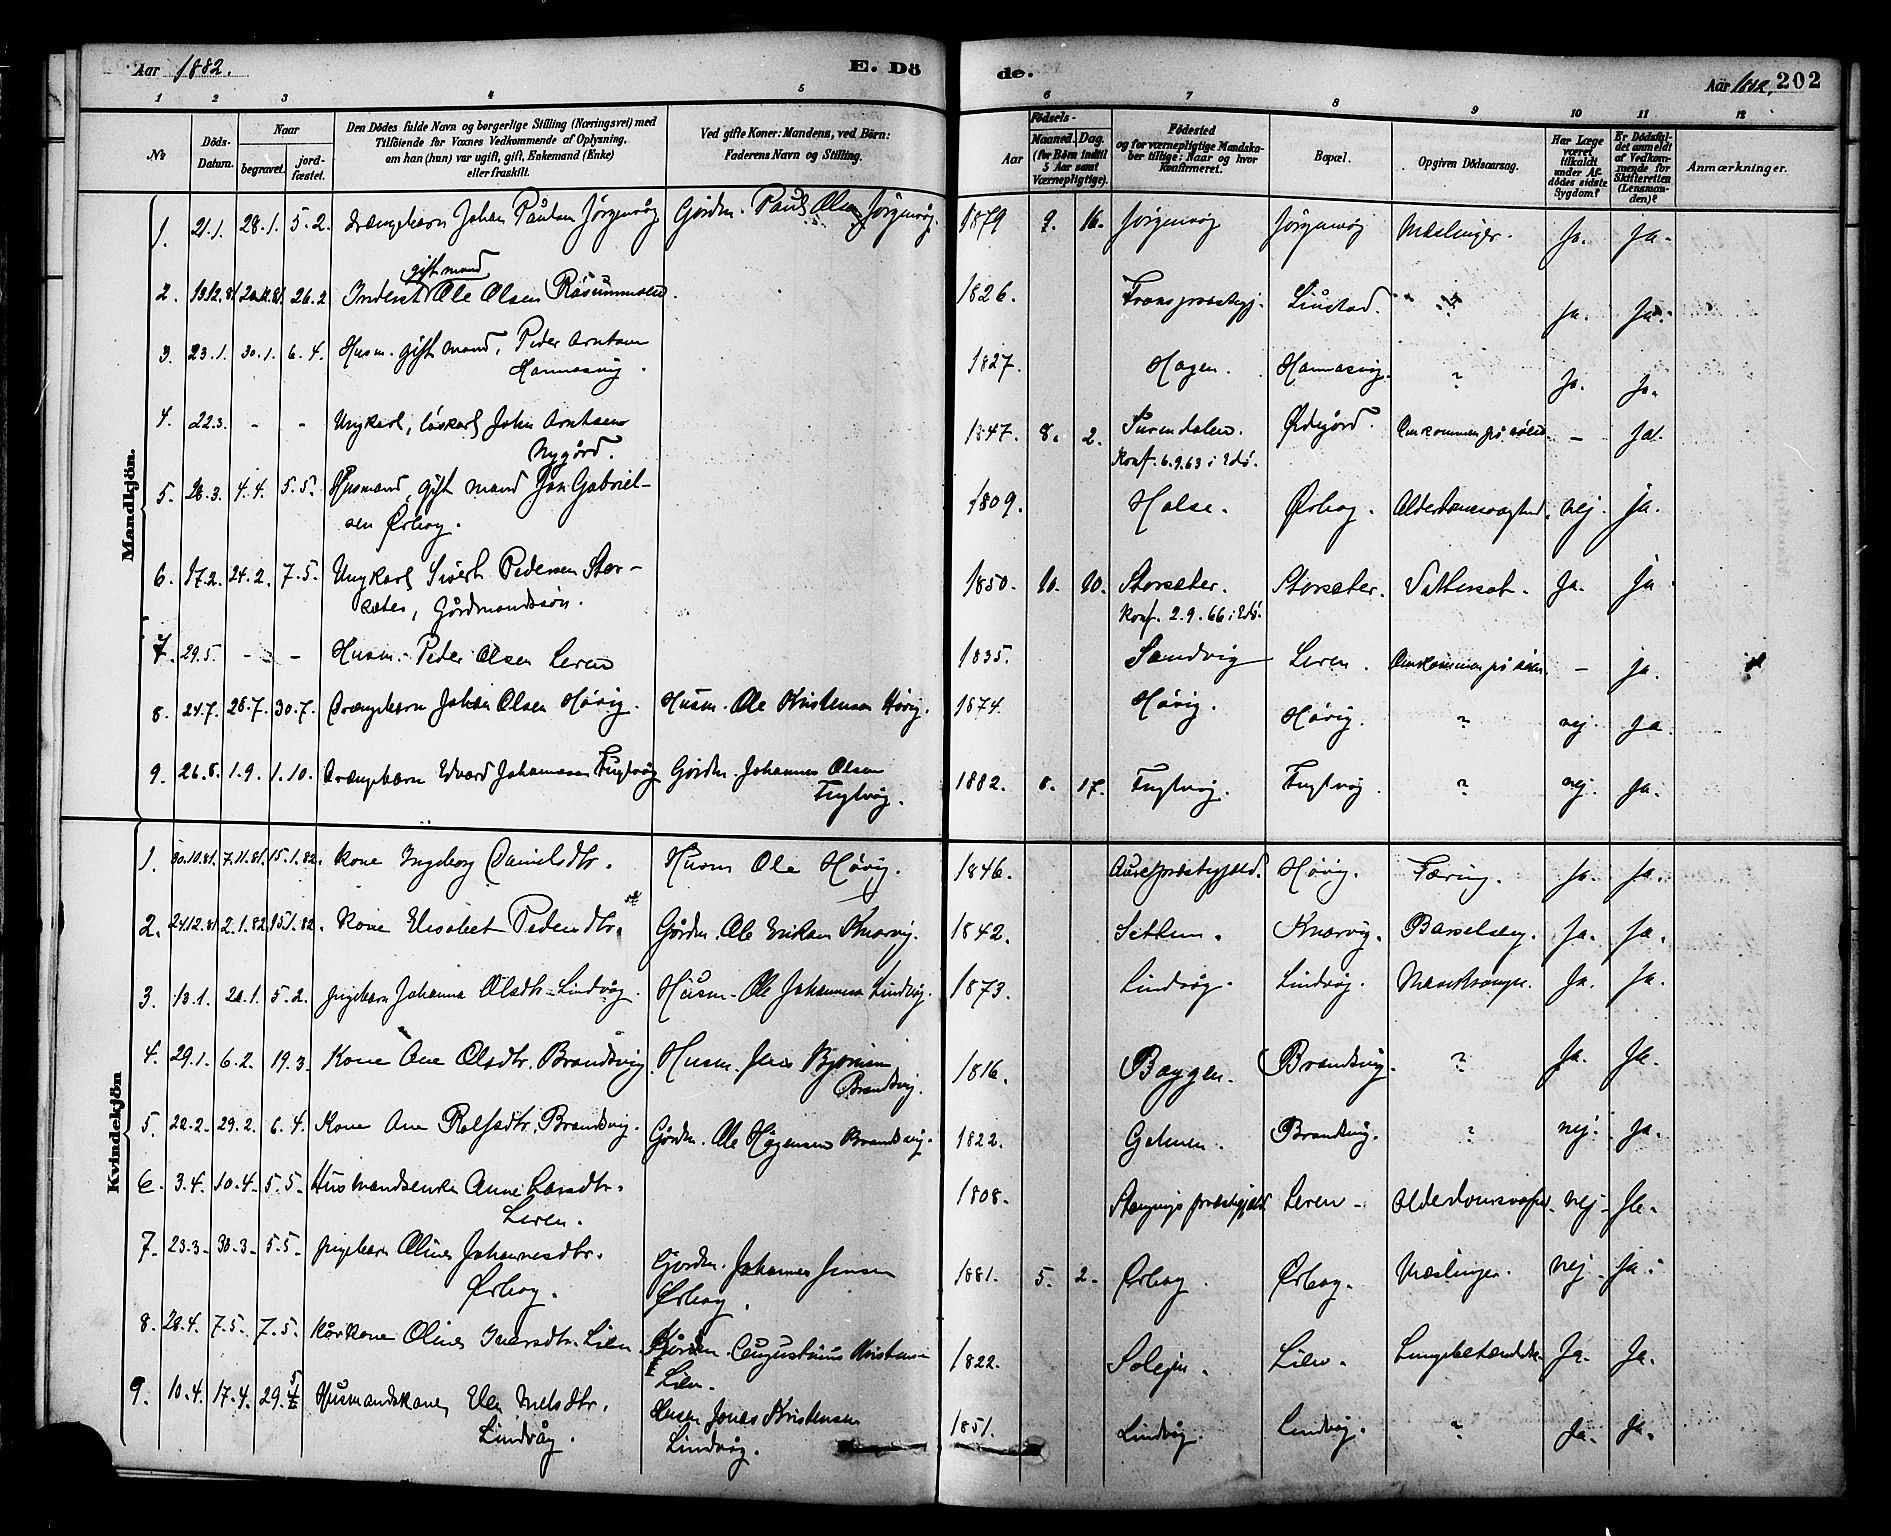 Aar 1882. E. Döde. Aar 1882. 202
1 2 3 4 5 6 7 8 9 10 11 12
No
Döds-Datum.
Naar begravet. jordfæstet.
Den Dödes fulde Navn og borgerlige Stilling (Næringsvei) med
Tilföiende for Voxnes Vedkommende af Oplysning,
om han (hun) var ugift, gift, Enkemand (Enke)
eller fraskilt.
Ved gifte Koner: Mandens, ved Börn:
Faderens Navn og Stilling.
Födsels-
Aar Maaned. Dag.
(for Börn indtil
5 Aar samt
Værnepligtige).
Födested
og for værnepligtige Mandskaber tillige: Naar og hvor
Konfirmeret.
Bopæl.
Opgiven Dödsaarsag.
Har Læge
været
tilkaldt
under Afdödes sidste
Sygdom?
Er Dödsfaldet anmeldt
af Vedkommende for
Skifteretten
(Lensmanden)?
Anmærkninger.
Mandkjön.
1. 21.1. 28.1. 5.2. Drængebarn Johan Paulsen Jørgenvåg Gårdm. Paul Olsen Jørgenvåg. 1879 9. 16. Jørgenvåg Jørgenvåg Mæslinger. Ja. Ja.
gift mand
2. 13.12.81 26.2. Inderst Ole Olsen 1826. Liustad. Ja. Ja.
3. 23.1. 30.1. 6.4. Husm. gift mand, Peder Arntsen
Hannasvig. 1827. Hagen. Hannasvig. ? Ja. Ja.
4. 22.3. - - Ungkarl, løskarl John Arntsen
Nygård. 1847. 8. 2. Surendalen. Ødegård. Omkommen på søen. - Ja.
Konf. 6.9.63 i Edø.
5. 26.3. 4.4. 5.5. Husmand, gift mand Jon Gabrielsen Ørbog. 1809. Halse. Ørbog. Alderdomssvaghed. nej. Ja.
6. 17.2. 24.2. 7.5. Ungkarl Sivert Pedersen Storsæter, Gårdmandssøn. 1850. 10. 10. Storsæter. Storsæter. Vattersot. Ja. Ja
Konf. 2.9.66 i Edø.
7. 29.5. - - Husm. Peder Olsen Leren 1835. Sandvig Leren. Omkommen på søen. - Ja.
8. 24.7. 28.7. 30.7. Drængebarn Johan Olsen Høvig. Husm. Ole Kristensen Høvig. 1874. Høvig. Høvig. ? nej. Ja.
9. 26.8. 1.9. 1.10. Drængebarn Edvard Johannesen Fuglvåg Gårdm. Johannes Olsen
Fuglvåg. 1882. 8. 17. Fuglvåg. Fuglvåg. ? nej. Ja.
Kvindekjön
1. 30.10.81. 7.11.81. 15.1.82. Kone Ingeborg Danielsdtr. Husm Ole Høvig. 1846. Aure præstegjæld. Høvig. Tæring. Ja. Ja.
2. 24.12.81 2.1.82 15.1.82. Kone Elisabet Pedersdtr. Gårdm. Ole Eriksen Knarvig. 1842. Settem. Knarvig. Barselseng. Ja. Ja.
3. 13.1. 20.1. 5.2. Pigebarn Johanna Olsdtr. Lindvåg. Husm. Ole Johannesen Lindvåg. 1873. Lindvåg. Lindvåg. Mavekrampe. Ja. Ja.
4. 29.1. 6.2. 19.3. Kone Ane Olsdtr. Brandsvig. Husm. Jens
Brandsvig. 1816. Bøggen. Brandsvig. ? Ja. Ja.
5. 22.2. 29.2. 6.4. Kone Ane Rolfsdtr. Brandsvig. Gårdm. Ole Hågensen Brandsvig. 1822. Brandsvig. ? nej. Ja.
6. 3.4. 10.4. 5.5. Husmandsenke Anne Larsdtr.
Leren. 1808. Stangvigs præstegjæld. Leren. Alderdomssvaghed. nej. Ja.
7. 23.3. 30.3. 5.5. Pigebarn Oline Johannesdtr.
Ørbog. Gårdm. Johannes Jensen
Ørbog. 1881. 5. 2. Ørbog. Ørbog. Mæslinger. nej. Ja.
8. 28.4. 7.5. 7.5. Kårkone Oline Iversdtr. Lien. Augustinus Kristensen
Lien. 1822. Solejm. Lien. Lungebetændelse. Ja. Ja.
9. 10.4. 17.4. 29. Husmandskone, Elen Nilsdtr.
Lindvåg. Husm Jonas Kristensen
Lindvåg. 1851. Lindvåg. Lindvåg. ? Ja. Ja.